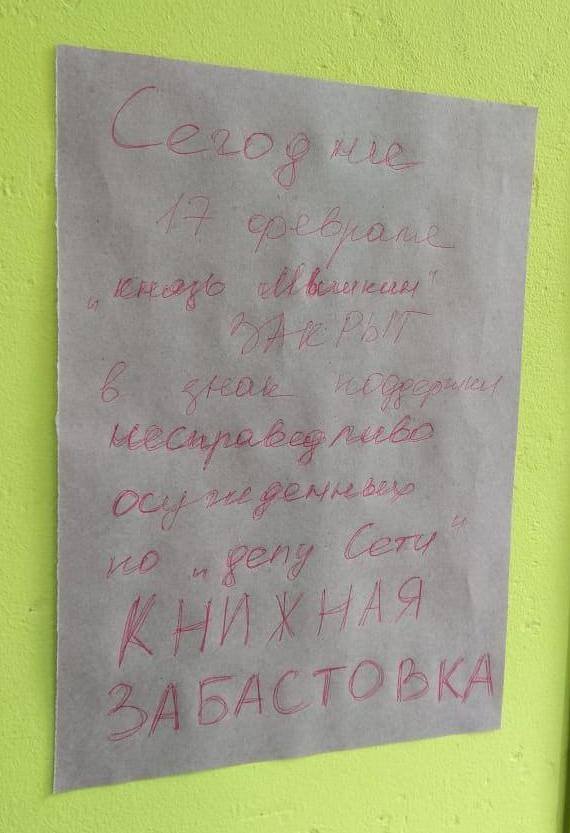 Сегодня
17 февраля
„князь Мышкин"
ЗАКРЫТ
в знак поддержки
несправедливо
осужденных
по „делу Сети"
КНИЖНАЯ
ЗАБАСТОВКА